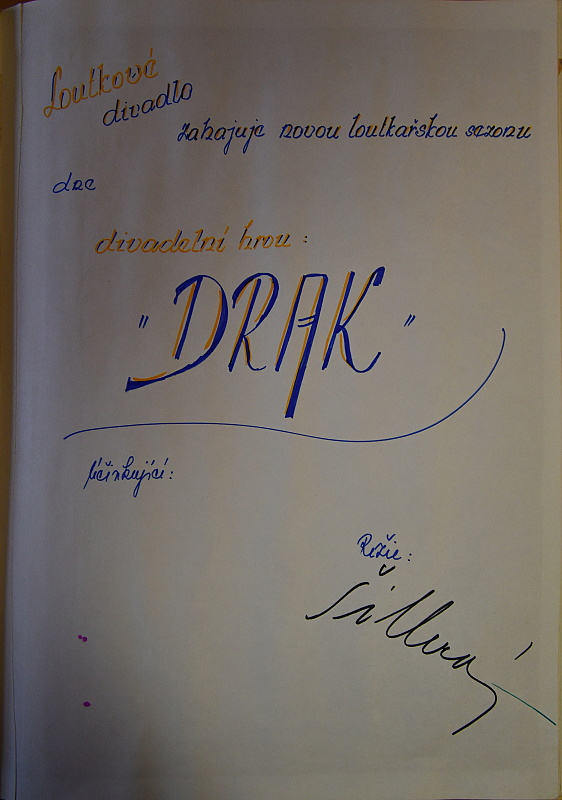 Loutkové
divadlo
zahajuje novou loutkařskou sezonu
dne
divadelní hrou:
"DRAK"
Účinkující:
Režie: